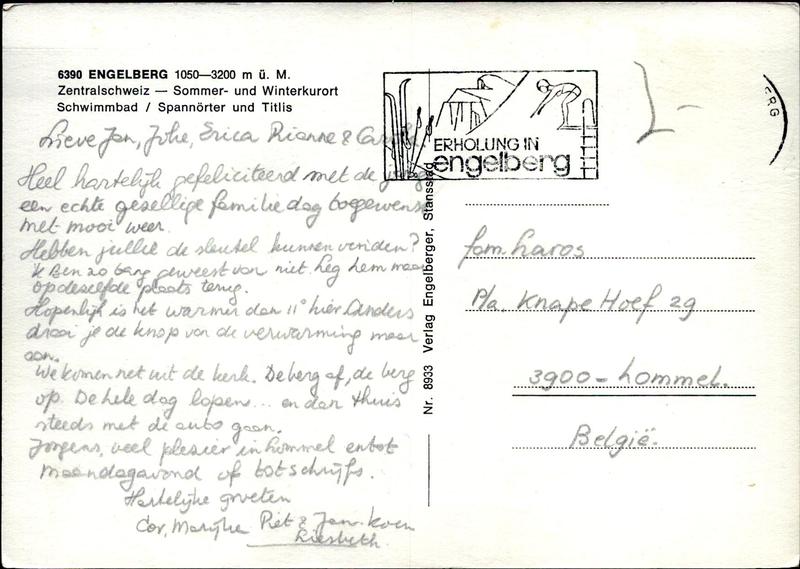 6390 ENGELBERG 1050—3200 m ü. M.
Zentralschweiz — Sommer- und Winterkurort
Schwimmbad / Spannörter und Titlis
ERHOLUNG IN
engelberg
ERG
Lieve Jan, Johe, Erica Rianne & 
Heel hartelijk gefeliciteerd met de
een echte gezellige familie dag toegewenst
met mooi weer.
Hebben jullie de sleutel kunnen vinden?
Ik Ben zo bang geweest van niet. Leg hem maar
op dezelfde plaats terug.
Hopenlijk is het warmer dan 11° hier. Anders
draai je de knop van de verwarming maar
aan.
We komen net uit de kerk. De berg af, de berg
op. De hele dag lopen... en dan thuis
steeds met de auto gaan.
Jongens, veel plezier in Lommel en tot
Maandagavond of tot schrijfs.
Hartelijke groeten
Cor, Marijke Piet & Jan-Koen
Liesbeth.
Nr. 8933 Verlag Engelberger, Stansstad
fam. Laros
P/a. Knape Hoef 29
3900 - Lommel.
België.